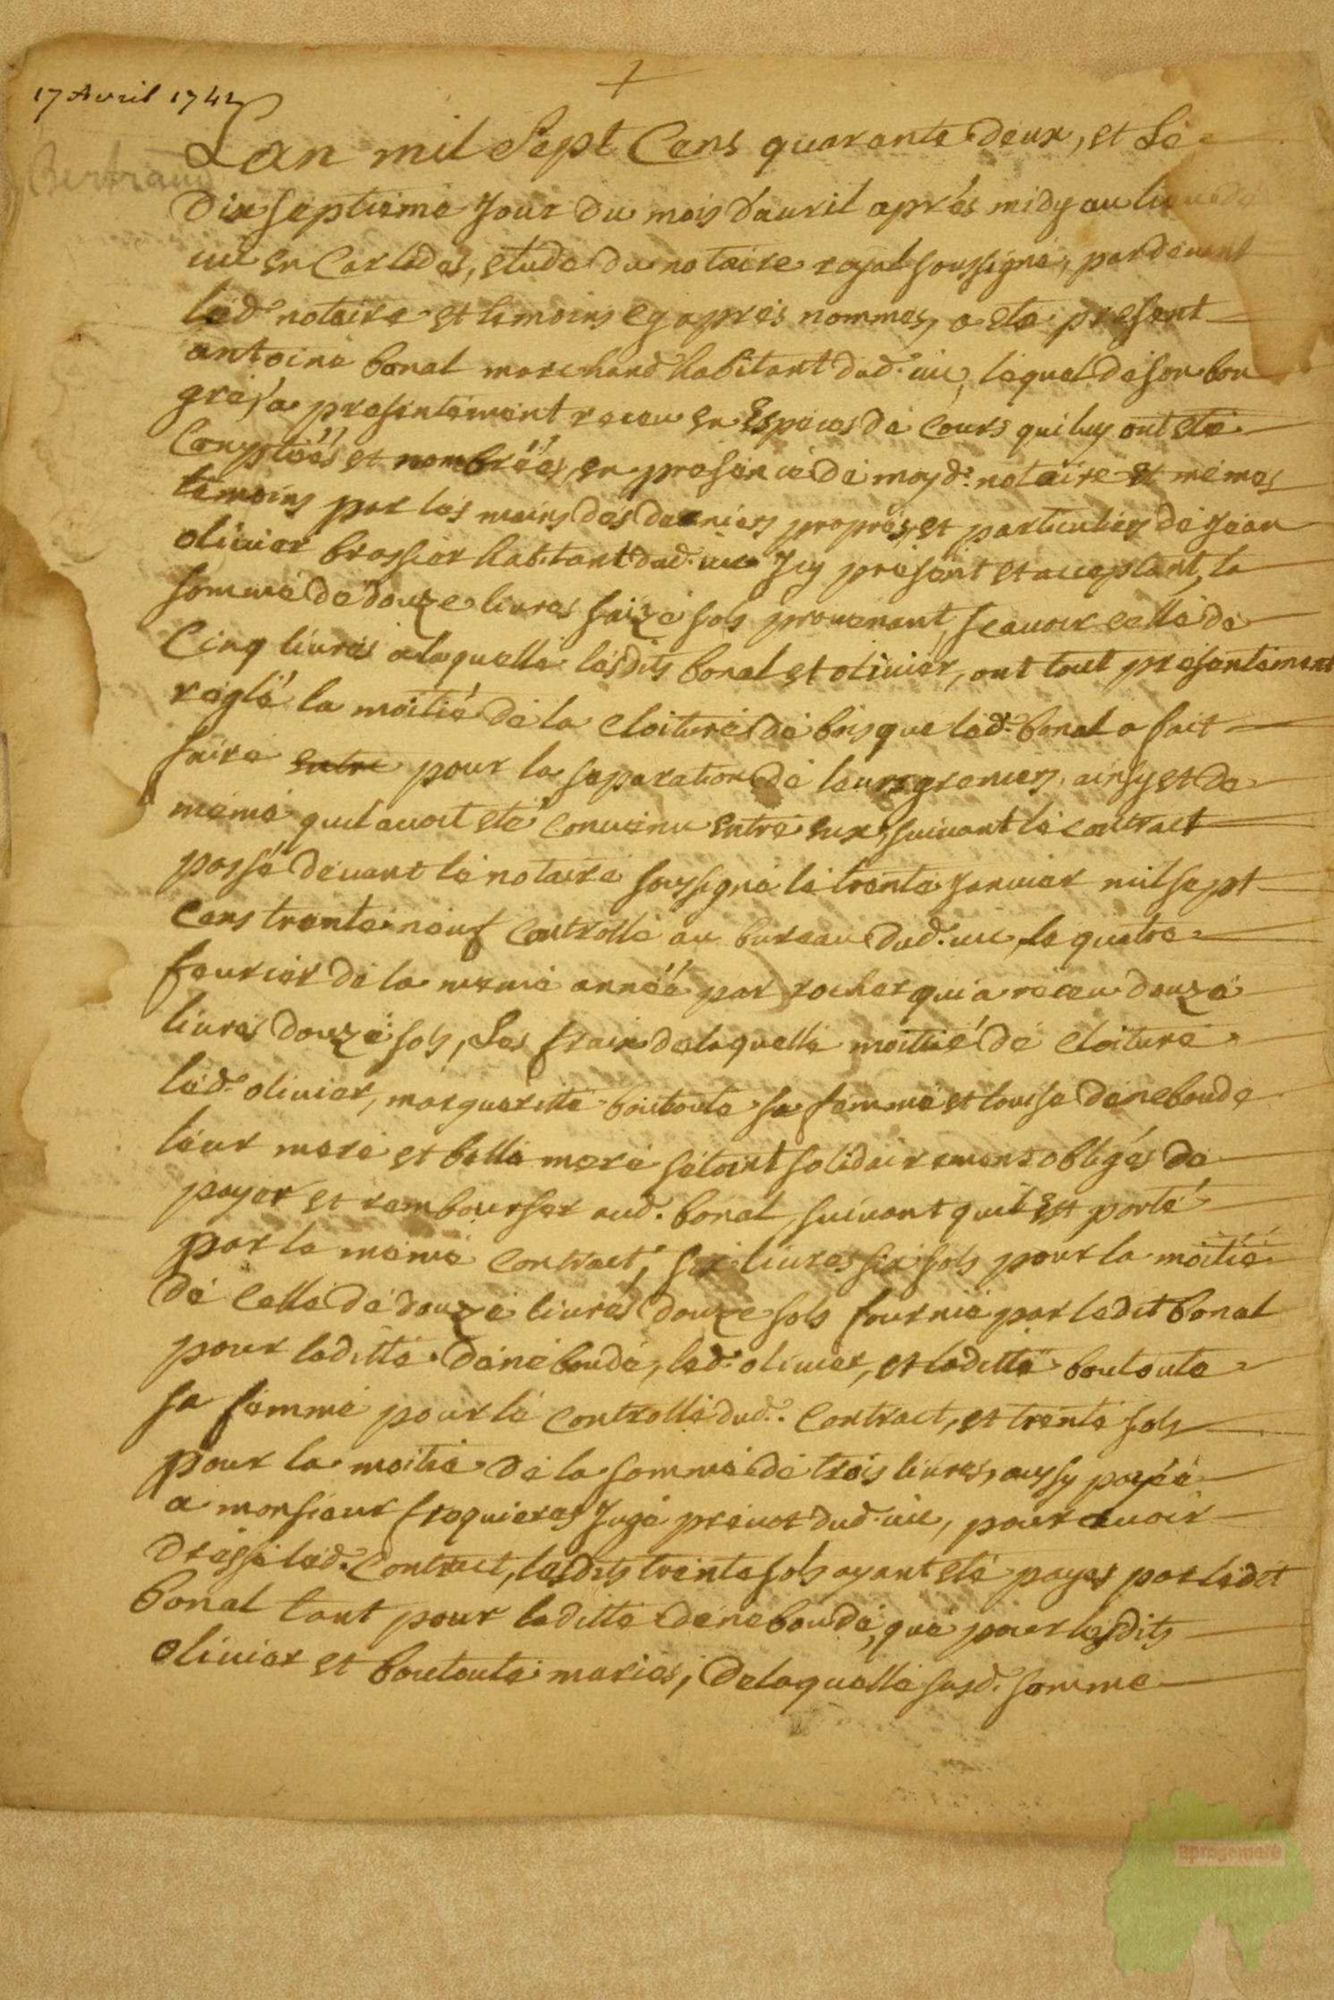 17 Avril 1742
Bertrand
Lan mil Sept Cens quarante deux, et Le
Dix Septieme Jour Du mois d'auril aprés midy au lieu de
uic en Carladés, etude Du notaire royal soussigné, pardeuant
led.^t notaire et temoins cy aprés nommés, a eté present
antoine bonal marchand habitant dud. uic, lequel de son bon
gré, a presentement receu en Especes de Cours qui luy ont eté
Comptéés et nombréés, en presence de moyd. notaire et mémes
temoins par les mains des deniers propres, et particuliers de Jean
oliuier brassier habitant dud. uic Icy présent et acceptant, la
somme de douze liures saize sols prouenant, scauoir celle de
Cinq liures a laquelle lesdits bonal et oliuier, ont tout presentement
reglé la moitié de la cloiture de bois que led.^t bonal a fait
faire entre pour la separation de leurs greniers, ainsy et de
méme quil auoit eté conuenu entre eux, suiuant le contract
passé deuant le notaire soussigné le trente Januier mil sept
cens trente neuf controllé au bureau dud. uic, le quatre
feurier de la méme annéé par rocher qui a receu douze
liures douze sols, Les frais de laquelle moitié de cloiture
led. oliuier, margueritte boutoute sa femme et louise Deneboude
leur mere et belle mere sétoint solidairement obligés de
payer et rembourser aud. bonal, suiuant quil est porté
par le méme contract, six liures six sols pour la moitié
de celle de douze liures douze sols fournie par ledit bonal
pour laditte Deneboude, led. oliuier, et laditte boutoute
sa femme pour le controlle dud. contract, et trente sols
pour la moitié de la somme de trois liures, aussy payéé
a monsieur froquieres Juge preuot dud. uic, pour auoir
dressé led. Contract, lesdits trente sols ayant eté payés par ledit
bonal tant pour laditte Deneboude, que pour lesdits
oliuier et boutoute mariés, De laquelle susd. somme
aprogemere